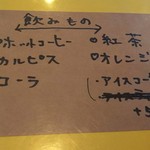 飲みもの
ホットコーヒー
カルピス
コーラ
紅茶
オレンジ
アイスコー